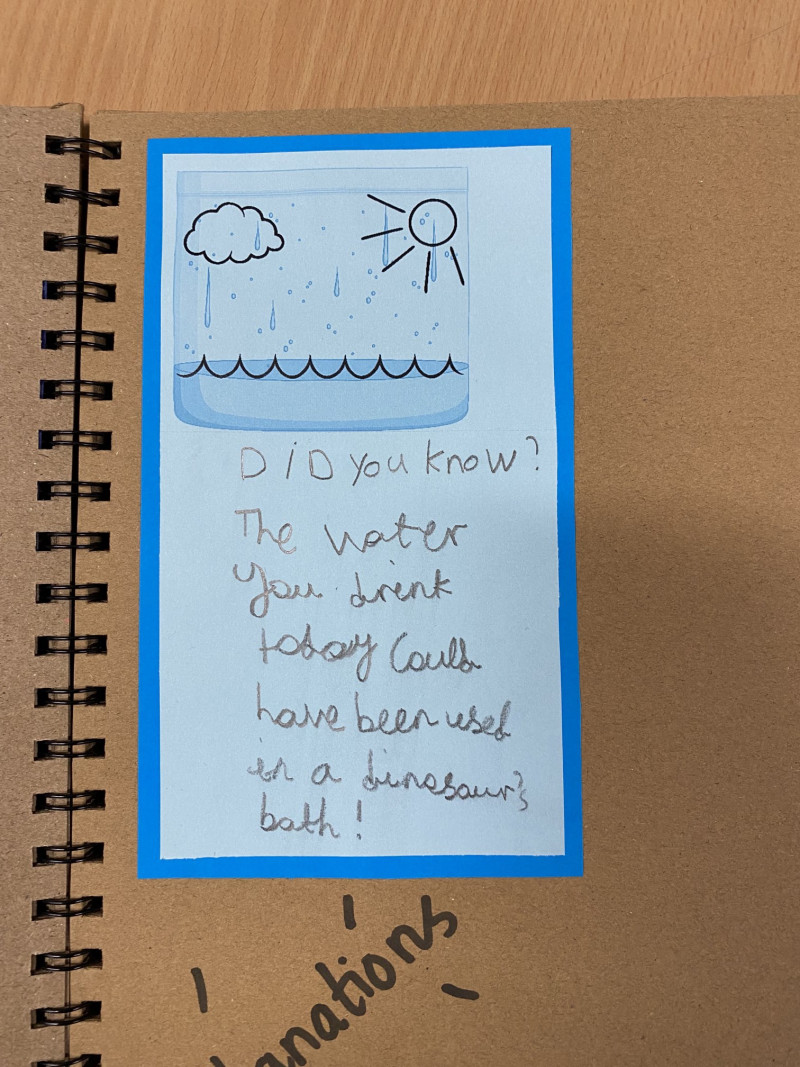 DiD you know?
The water
You drink
today Could
have been used
in a dinosaur's
bath!
anations